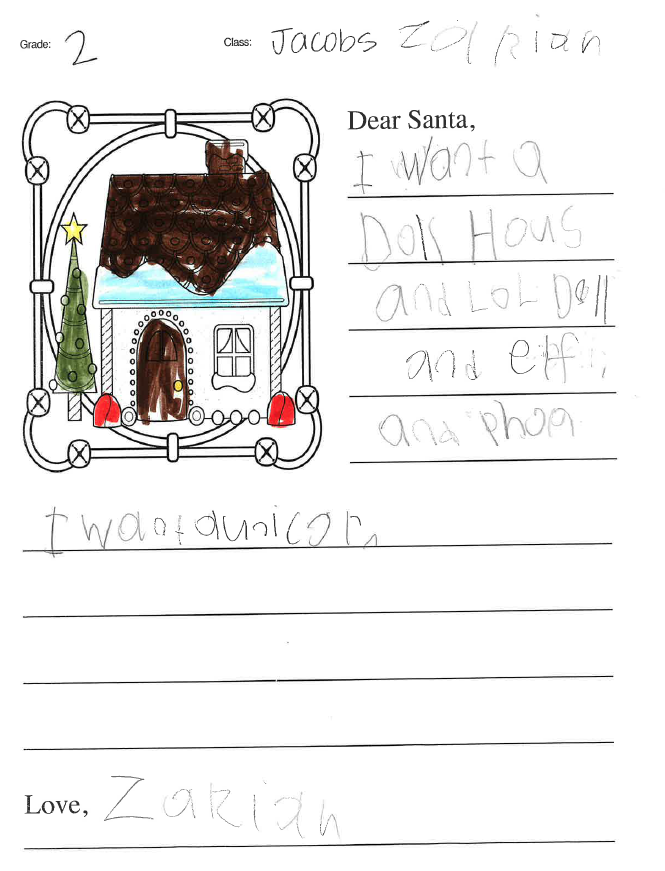 Grade: 2 Class: Jacobs Zakian
Dear Santa,
I want a
Doll Hous
and LoL Doll
and
and phon
I want a unicorn
Love, Zakian